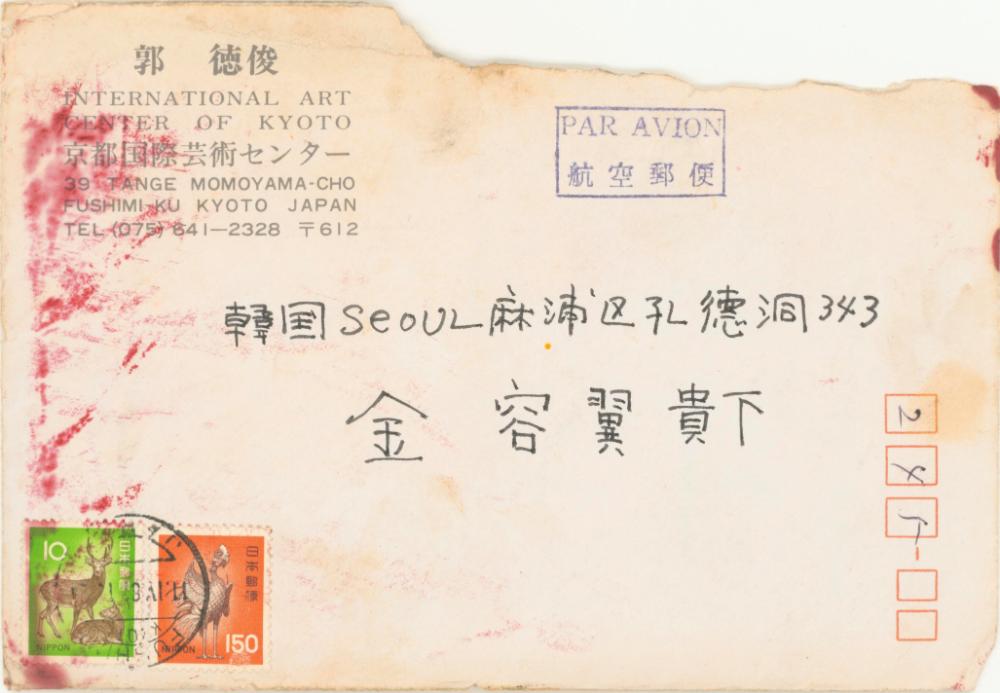 郭 徳俊
INTERNATIONAL ART
CENTER OF KYOTO
京都国際芸術センター
39 TANGE MOMOYAMA-CHO
FUSHIMI-KU KYOTO JAPAN
TEL (075) 641-2328 〒612
PAR AVION
航空郵便
韓国 SEOUL 麻浦区孔德洞 343
金容翼 貴下
2
4
10
日本郵便
NIPPON
日本郵便
NIPPON
150